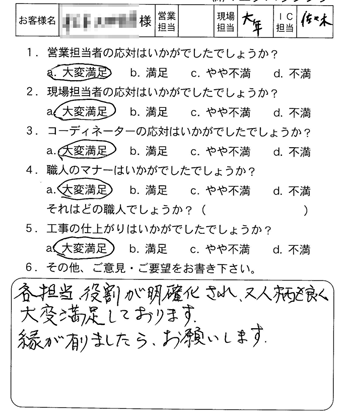 お客様名 様 営業担当 現場担当 大年 IC担当 佐々木
1．営業担当者の応対はいかがでしたでしょうか？
a. 大変満足 b. 満足 c. やや不満 d. 不満
2．現場担当者の応対はいかがでしたでしょうか？
a. 大変満足 b. 満足 c. やや不満 d. 不満
3．コーディネーターの応対はいかがでしたでしょうか？
a. 大変満足 b. 満足 c. やや不満 d. 不満
4．職人のマナーはいかがでしたでしょうか？
a. 大変満足 b. 満足 c. やや不満 d. 不満
それはどの職人でしょうか？（ ）
5．工事の仕上がりはいかがでしたでしょうか？
a. 大変満足 b. 満足 c. やや不満 d. 不満
6．その他、ご意見・ご要望をお書き下さい。
各担当、役割が明確化され、又人柄も良く
大変満足しております。
縁が有りましたら、お願いします。